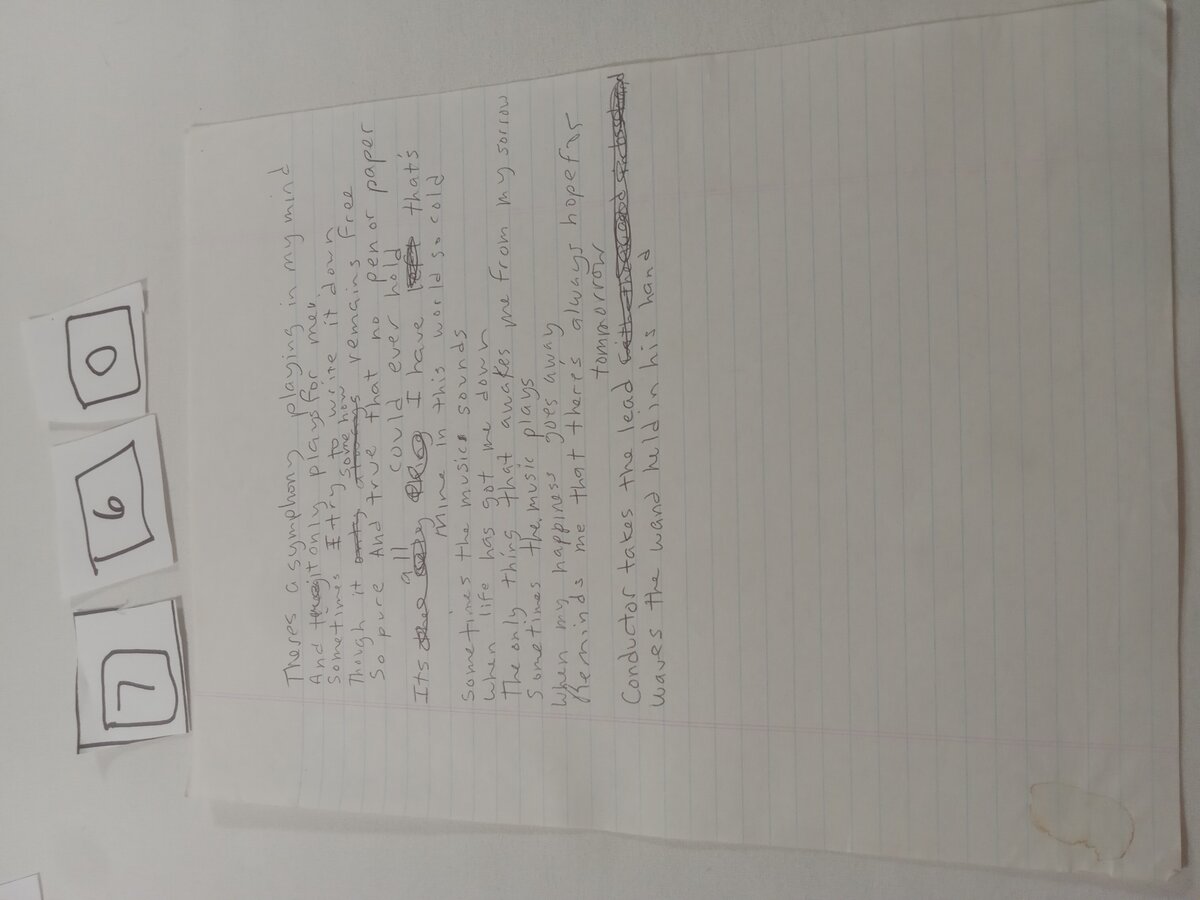 7 6 0
Theres a symphony playing in my mind
And it only plays for me
Sometimes I try to write it down
Though it somehow remains free
So pure And true that no pen or paper
could ever hold
Its all I have that's
mine in this world so cold
Sometimes the music sounds
When life has got me down
The only thing that awakes me from my sorrow
Sometimes the music plays
When my happiness goes away
Reminds me that there's always hope for
tommorrow
Conductor takes the lead
waves the wand held in his hand